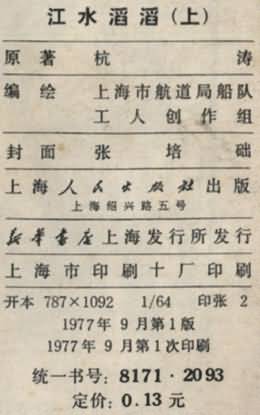 江水滔滔(上)
原著 杭涛
编绘 上海市航道局船队
工人创作组
封面 张培础
上海人民出版社出版
上海绍兴路五号
新华书店上海发行所发行
上海市印刷十厂印刷
开本 787×1092 1/64 印张 2
1977年9月第1版
1977年9月第1次印刷
统一书号: 8171·2093
定价: 0.13 元